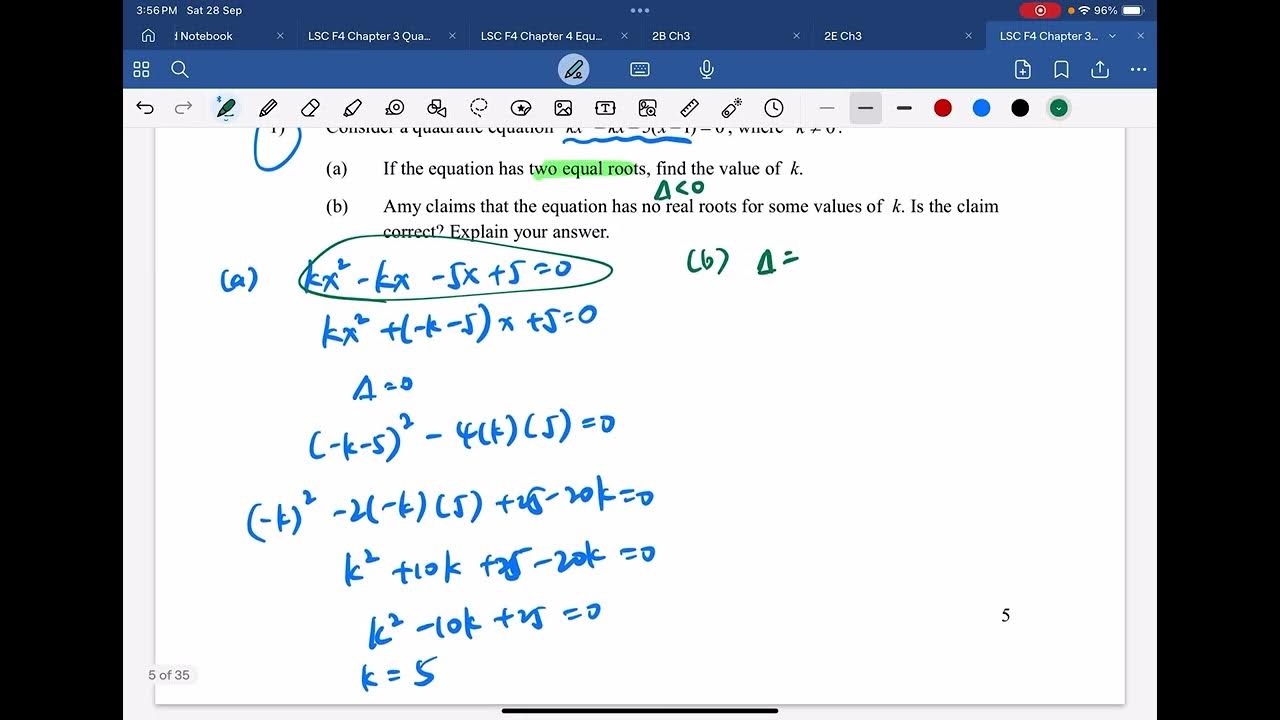 3:56 PM Sat 28 Sep
96%
d Notebook
LSC F4 Chapter 3 Qua...
LSC F4 Chapter 4 Equ...
2B Ch3
2E Ch3
LSC F4 Chapter 3...
1) Consider a quadratic equation kx² − kx − 5(x − 1) = 0, where k ≠ 0.
(a) If the equation has two equal roots, find the value of k.
Δ<0
(b) Amy claims that the equation has no real roots for some values of k. Is the claim
correct? Explain your answer.
(a) kx² - kx - 5x + 5 = 0
(b) Δ =
kx² + (-k-5)x + 5 = 0
Δ = 0
(-k-5)² - 4(k)(5) = 0
(-k)² - 2(-k)(5) + 25 - 20k = 0
k² + 10k + 25 - 20k = 0
k² - 10k + 25 = 0
k = 5
5
5 of 35